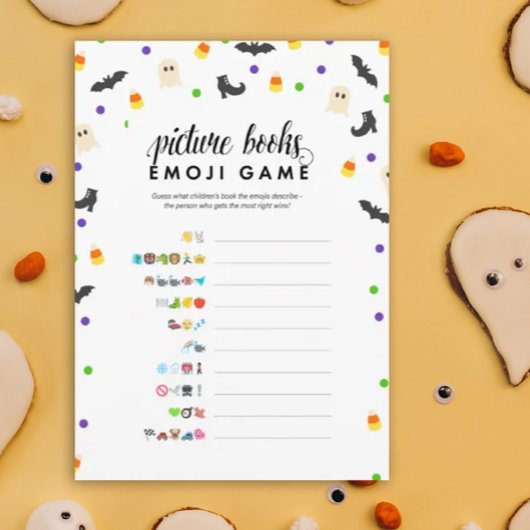 picture books
EMOJI GAME
Guess what children's book the emojis describe -
the person who gets the most right wins!